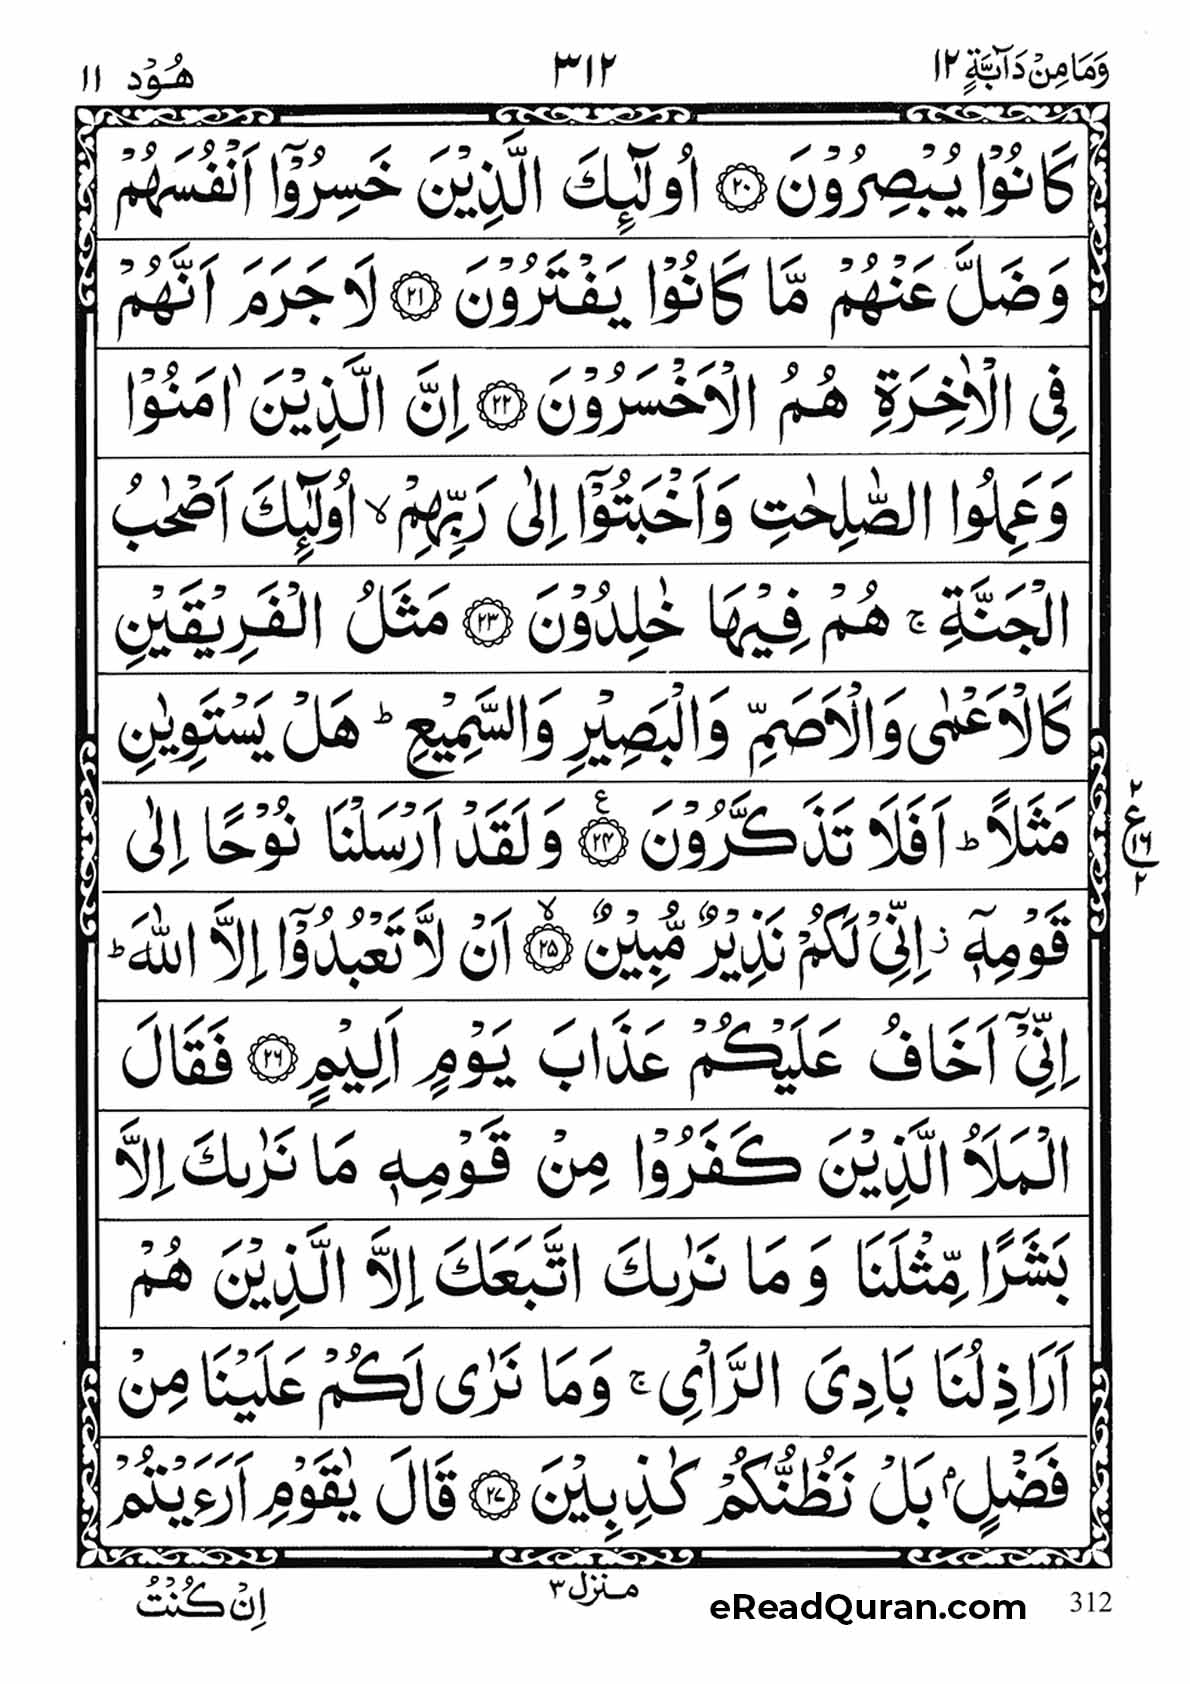 وَمَا مِنْ دَآبَّةٍ ١٢
٣١٢
هُوْد ١١
كَانُوْا يُبْصِرُوْنَ ٢٠ اُولٰٓئِكَ الَّذِيْنَ خَسِرُوْٓا اَنْفُسَهُمْ
وَضَلَّ عَنْهُمْ مَّا كَانُوْا يَفْتَرُوْنَ ٢١ لَا جَرَمَ اَنَّهُمْ
فِي الْاٰخِرَةِ هُمُ الْاَخْسَرُوْنَ ٢٢ اِنَّ الَّذِيْنَ اٰمَنُوْا
وَعَمِلُوا الصّٰلِحٰتِ وَاَخْبَتُوْٓا اِلٰى رَبِّهِمْ ۙ اُولٰٓئِكَ اَصْحٰبُ
الْجَنَّةِ ۚ هُمْ فِيْهَا خٰلِدُوْنَ ٢٣ مَثَلُ الْفَرِيْقَيْنِ
كَالْاَعْمٰى وَالْاَصَمِّ وَالْبَصِيْرِ وَالسَّمِيْعِ ؕ هَلْ يَسْتَوِيٰنِ
مَثَلًا ؕ اَفَلَا تَذَكَّرُوْنَ ٢٤ ع وَلَقَدْ اَرْسَلْنَا نُوْحًا اِلٰى
٢ ع ١٦ ٢
قَوْمِهٖٓ ز اِنِّيْ لَكُمْ نَذِيْرٌ مُّبِيْنٌ ٢٥ ۙ اَنْ لَّا تَعْبُدُوْٓا اِلَّا اللّٰهَ ؕ
اِنِّيْٓ اَخَافُ عَلَيْكُمْ عَذَابَ يَوْمٍ اَلِيْمٍ ٢٦ فَقَالَ
الْمَلَاُ الَّذِيْنَ كَفَرُوْا مِنْ قَوْمِهٖ مَا نَرٰىكَ اِلَّا
بَشَرًا مِّثْلَنَا وَمَا نَرٰىكَ اتَّبَعَكَ اِلَّا الَّذِيْنَ هُمْ
اَرَاذِلُنَا بَادِىَ الرَّاْىِ ۚ وَمَا نَرٰى لَكُمْ عَلَيْنَا مِنْ
فَضْلٍۭ بَلْ نَظُنُّكُمْ كٰذِبِيْنَ ٢٧ قَالَ يٰقَوْمِ اَرَءَيْتُمْ
اِنْ كُنْتُ
منزل ٣
eReadQuran.com
312